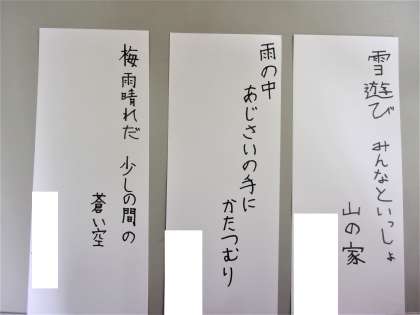 雪遊び
みんなといっしょ
山の家
雨の中
あじさいの手に
かたつむり
梅雨晴れだ 少しの間の
蒼い空